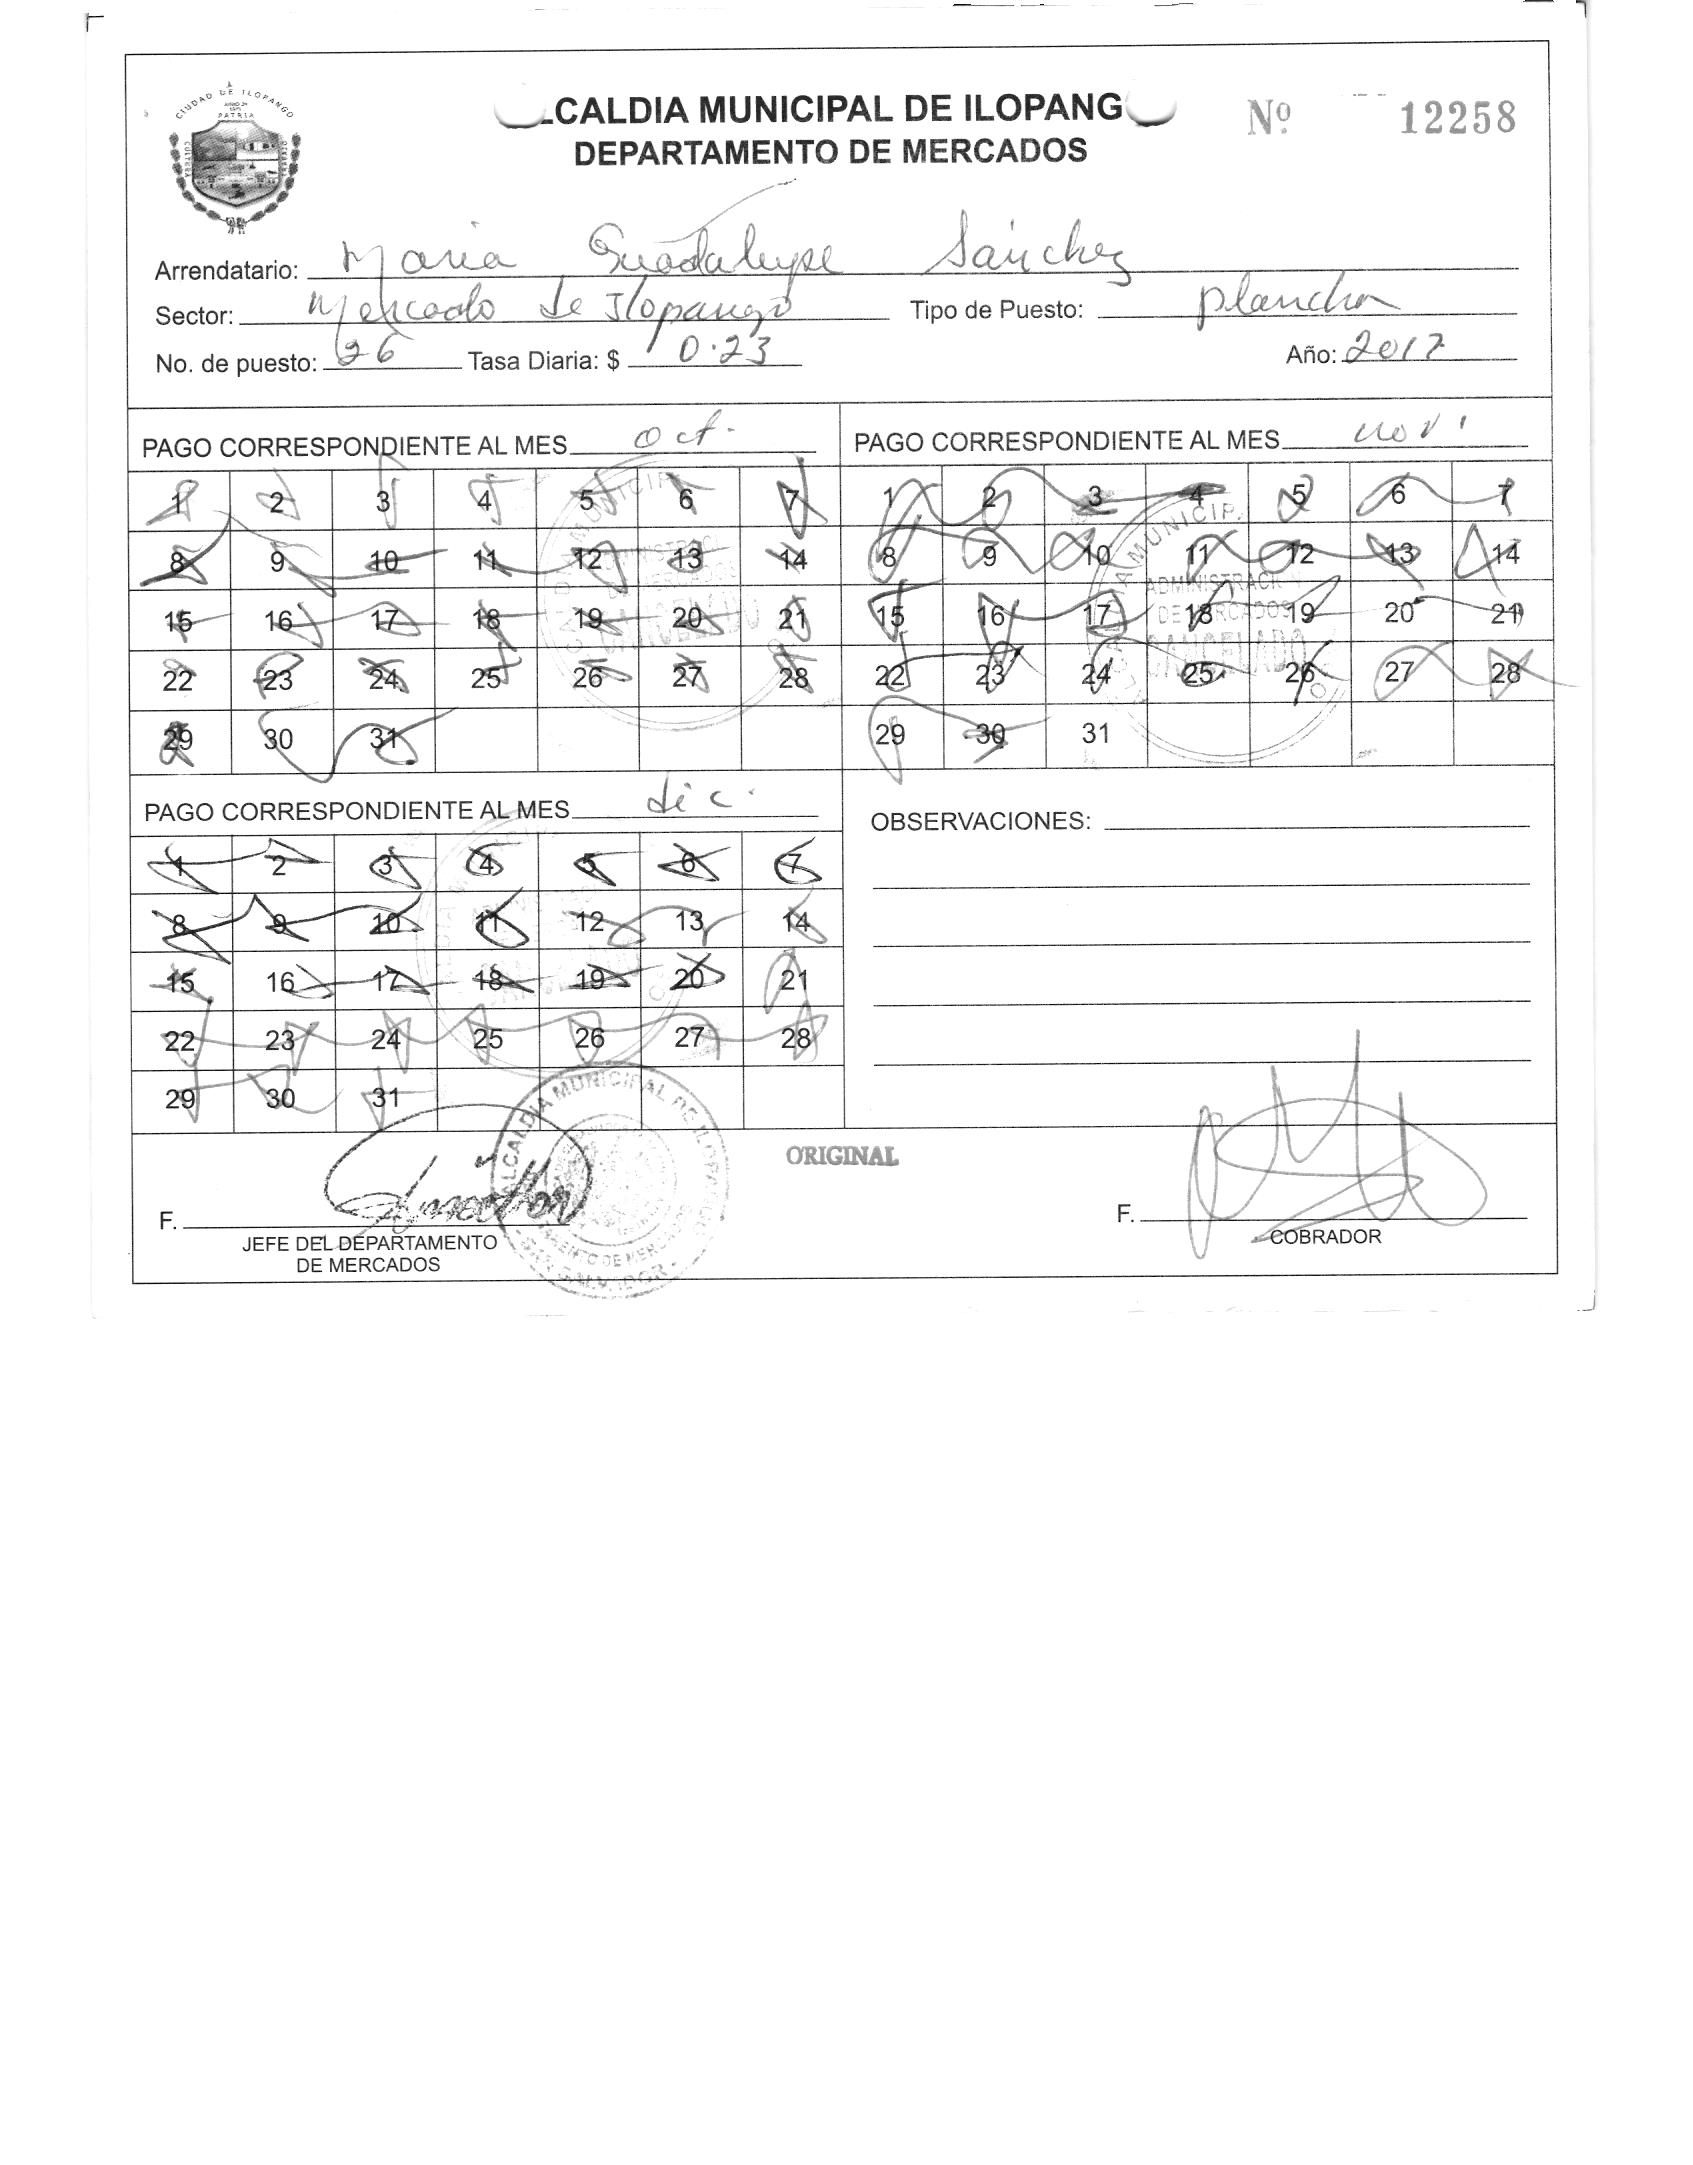 CIUDAD DE ILOPANGO
PATRIA
LCALDIA MUNICIPAL DE ILOPANG
Nº 12258
DEPARTAMENTO DE MERCADOS
Arrendatario: Maria Guadalupe Sánchez
Sector: Mercado de Ilopango Tipo de Puesto: plancha
No. de puesto: 26 Tasa Diaria: $ 0.23 Año: 2017
PAGO CORRESPONDIENTE AL MES oct.
1 2 3 4 5 6 7
8 9 10 11 12 13 14
15 16 17 18 19 20 21
22 23 24 25 26 27 28
29 30 31
PAGO CORRESPONDIENTE AL MES nov.
1 2 3 4 5 6 7
8 9 10 11 12 13 14
15 16 17 18 19 20 21
22 23 24 25 26 27 28
29 30 31
ADMINISTRACION
DE MERCADOS
CANCELADO
PAGO CORRESPONDIENTE AL MES dic.
1 2 3 4 5 6 7
8 9 10 11 12 13 14
15 16 17 18 19 20 21
22 23 24 25 26 27 28
29 30 31
OBSERVACIONES:
ORIGINAL
F.
JEFE DEL DEPARTAMENTO
DE MERCADOS
ALCALDIA MUNICIPAL DE ILOPANGO
F.
COBRADOR